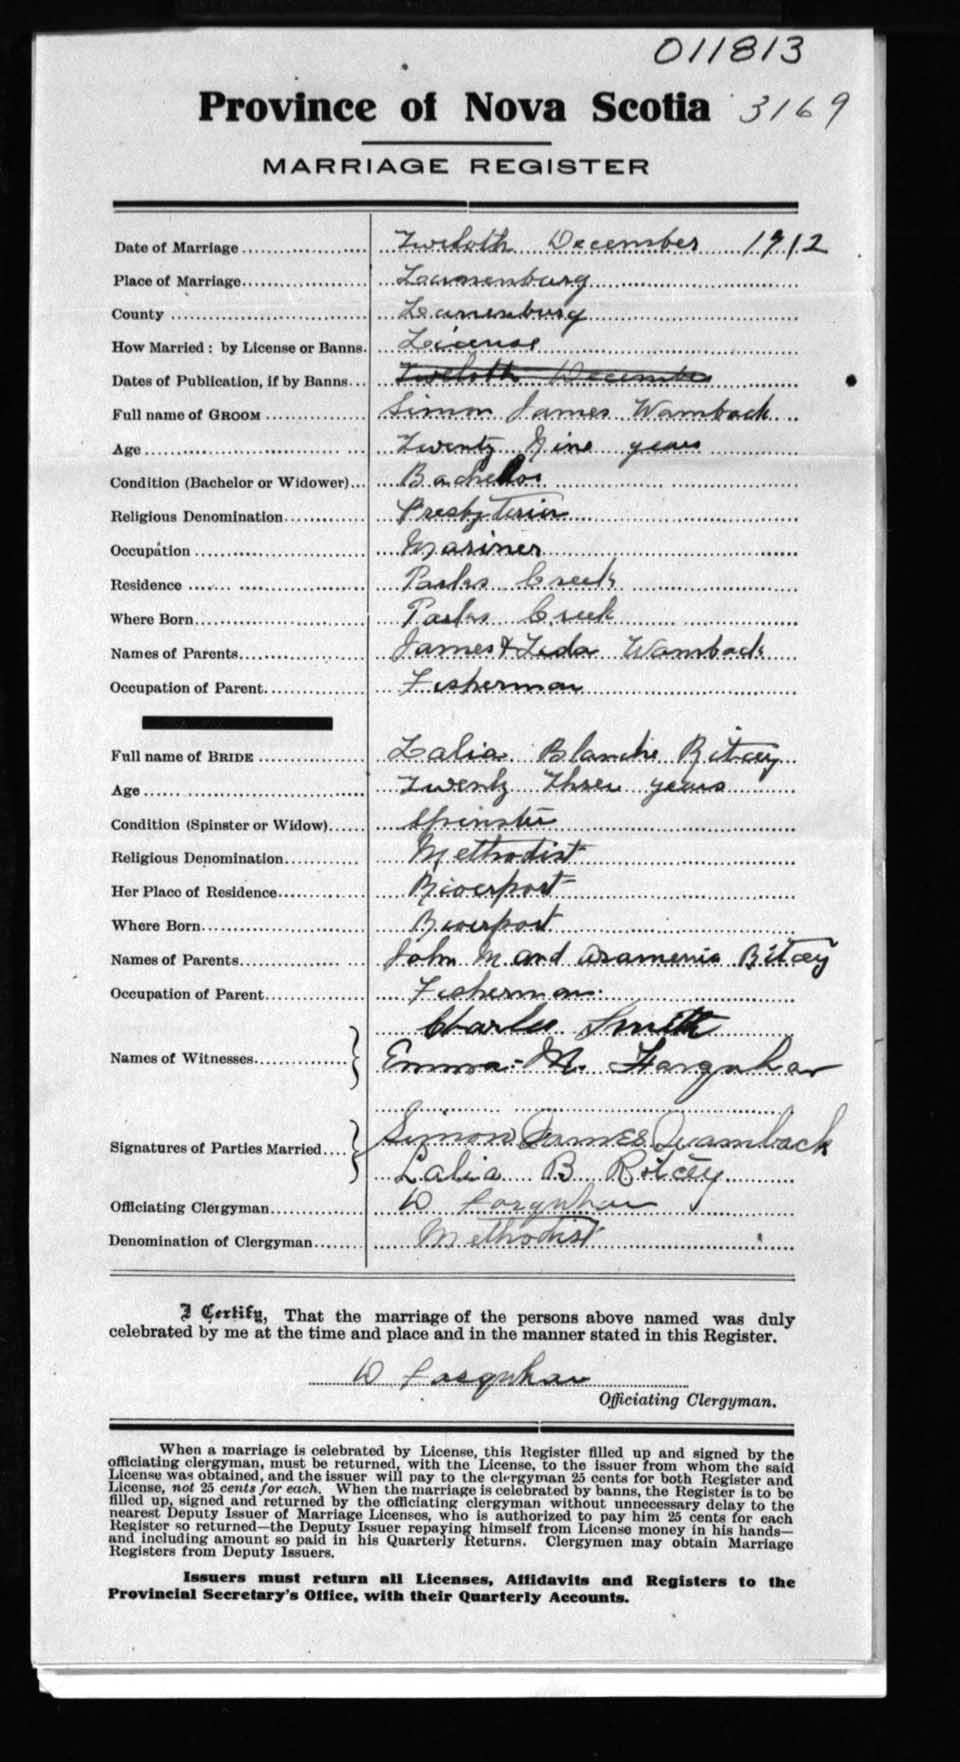 011813
Province of Nova Scotia 3169
MARRIAGE REGISTER
Date of Marriage Twelfth December 1912
Place of Marriage Lunenburg
County Lunenburg
How Married: by License or Banns. License
Dates of Publication, if by Banns Twelfth December
Full name of GROOM Simon James Wamback
Age Twenty Nine years
Condition (Bachelor or Widower) Bachelor
Religious Denomination Presbyterian
Occupation Mariner
Residence Parks Creek
Where Born Parks Creek
Names of Parents James & Leda Wamback
Occupation of Parent Fisherman
Full name of BRIDE Lalia Blanche Ritcey
Age Twenty Three years
Condition (Spinster or Widow) Spinster
Religious Denomination Methodist
Her Place of Residence Riverport
Where Born Riverport
Names of Parents John M and Aramenia Ritcey
Occupation of Parent Fisherman
Charles Smith
Names of Witnesses Emma M. Farquhar
Simon James Wamback
Signatures of Parties Married
Lalia B Ritcey
Officiating Clergyman D Farquhar
Denomination of Clergyman Methodist
I Certify, That the marriage of the persons above named was duly
celebrated by me at the time and place and in the manner stated in this Register.
D Farquhar
Officiating Clergyman.
When a marriage is celebrated by License, this Register filled up and signed by the
officiating clergyman, must be returned, with the License, to the issuer from whom the said
License was obtained, and the issuer will pay to the clergyman 25 cents for both Register and
License, not 25 cents for each. When the marriage is celebrated by banns, the Register is to be
filled up, signed and returned by the officiating clergyman without unnecessary delay to the
nearest Deputy Issuer of Marriage Licenses, who is authorized to pay him 25 cents for each
Register so returned—the Deputy Issuer repaying himself from License money in his hands—
and including amount so paid in his Quarterly Returns. Clergymen may obtain Marriage
Registers from Deputy Issuers.
Issuers must return all Licenses, Affidavits and Registers to the
Provincial Secretary's Office, with their Quarterly Accounts.